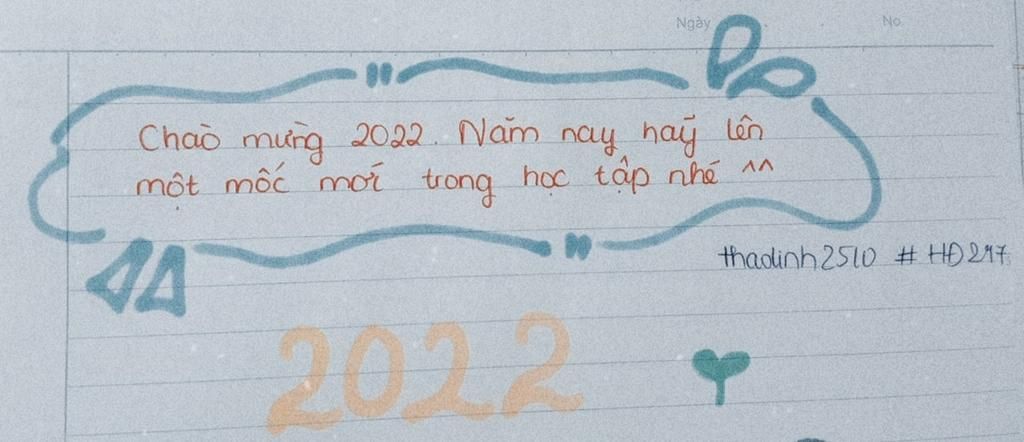 Ngày No.
Chào mừng 2022. Năm nay hãy lên
một mốc mới trong học tập nhé ^^
thaolinh2510 #HĐ247
2022